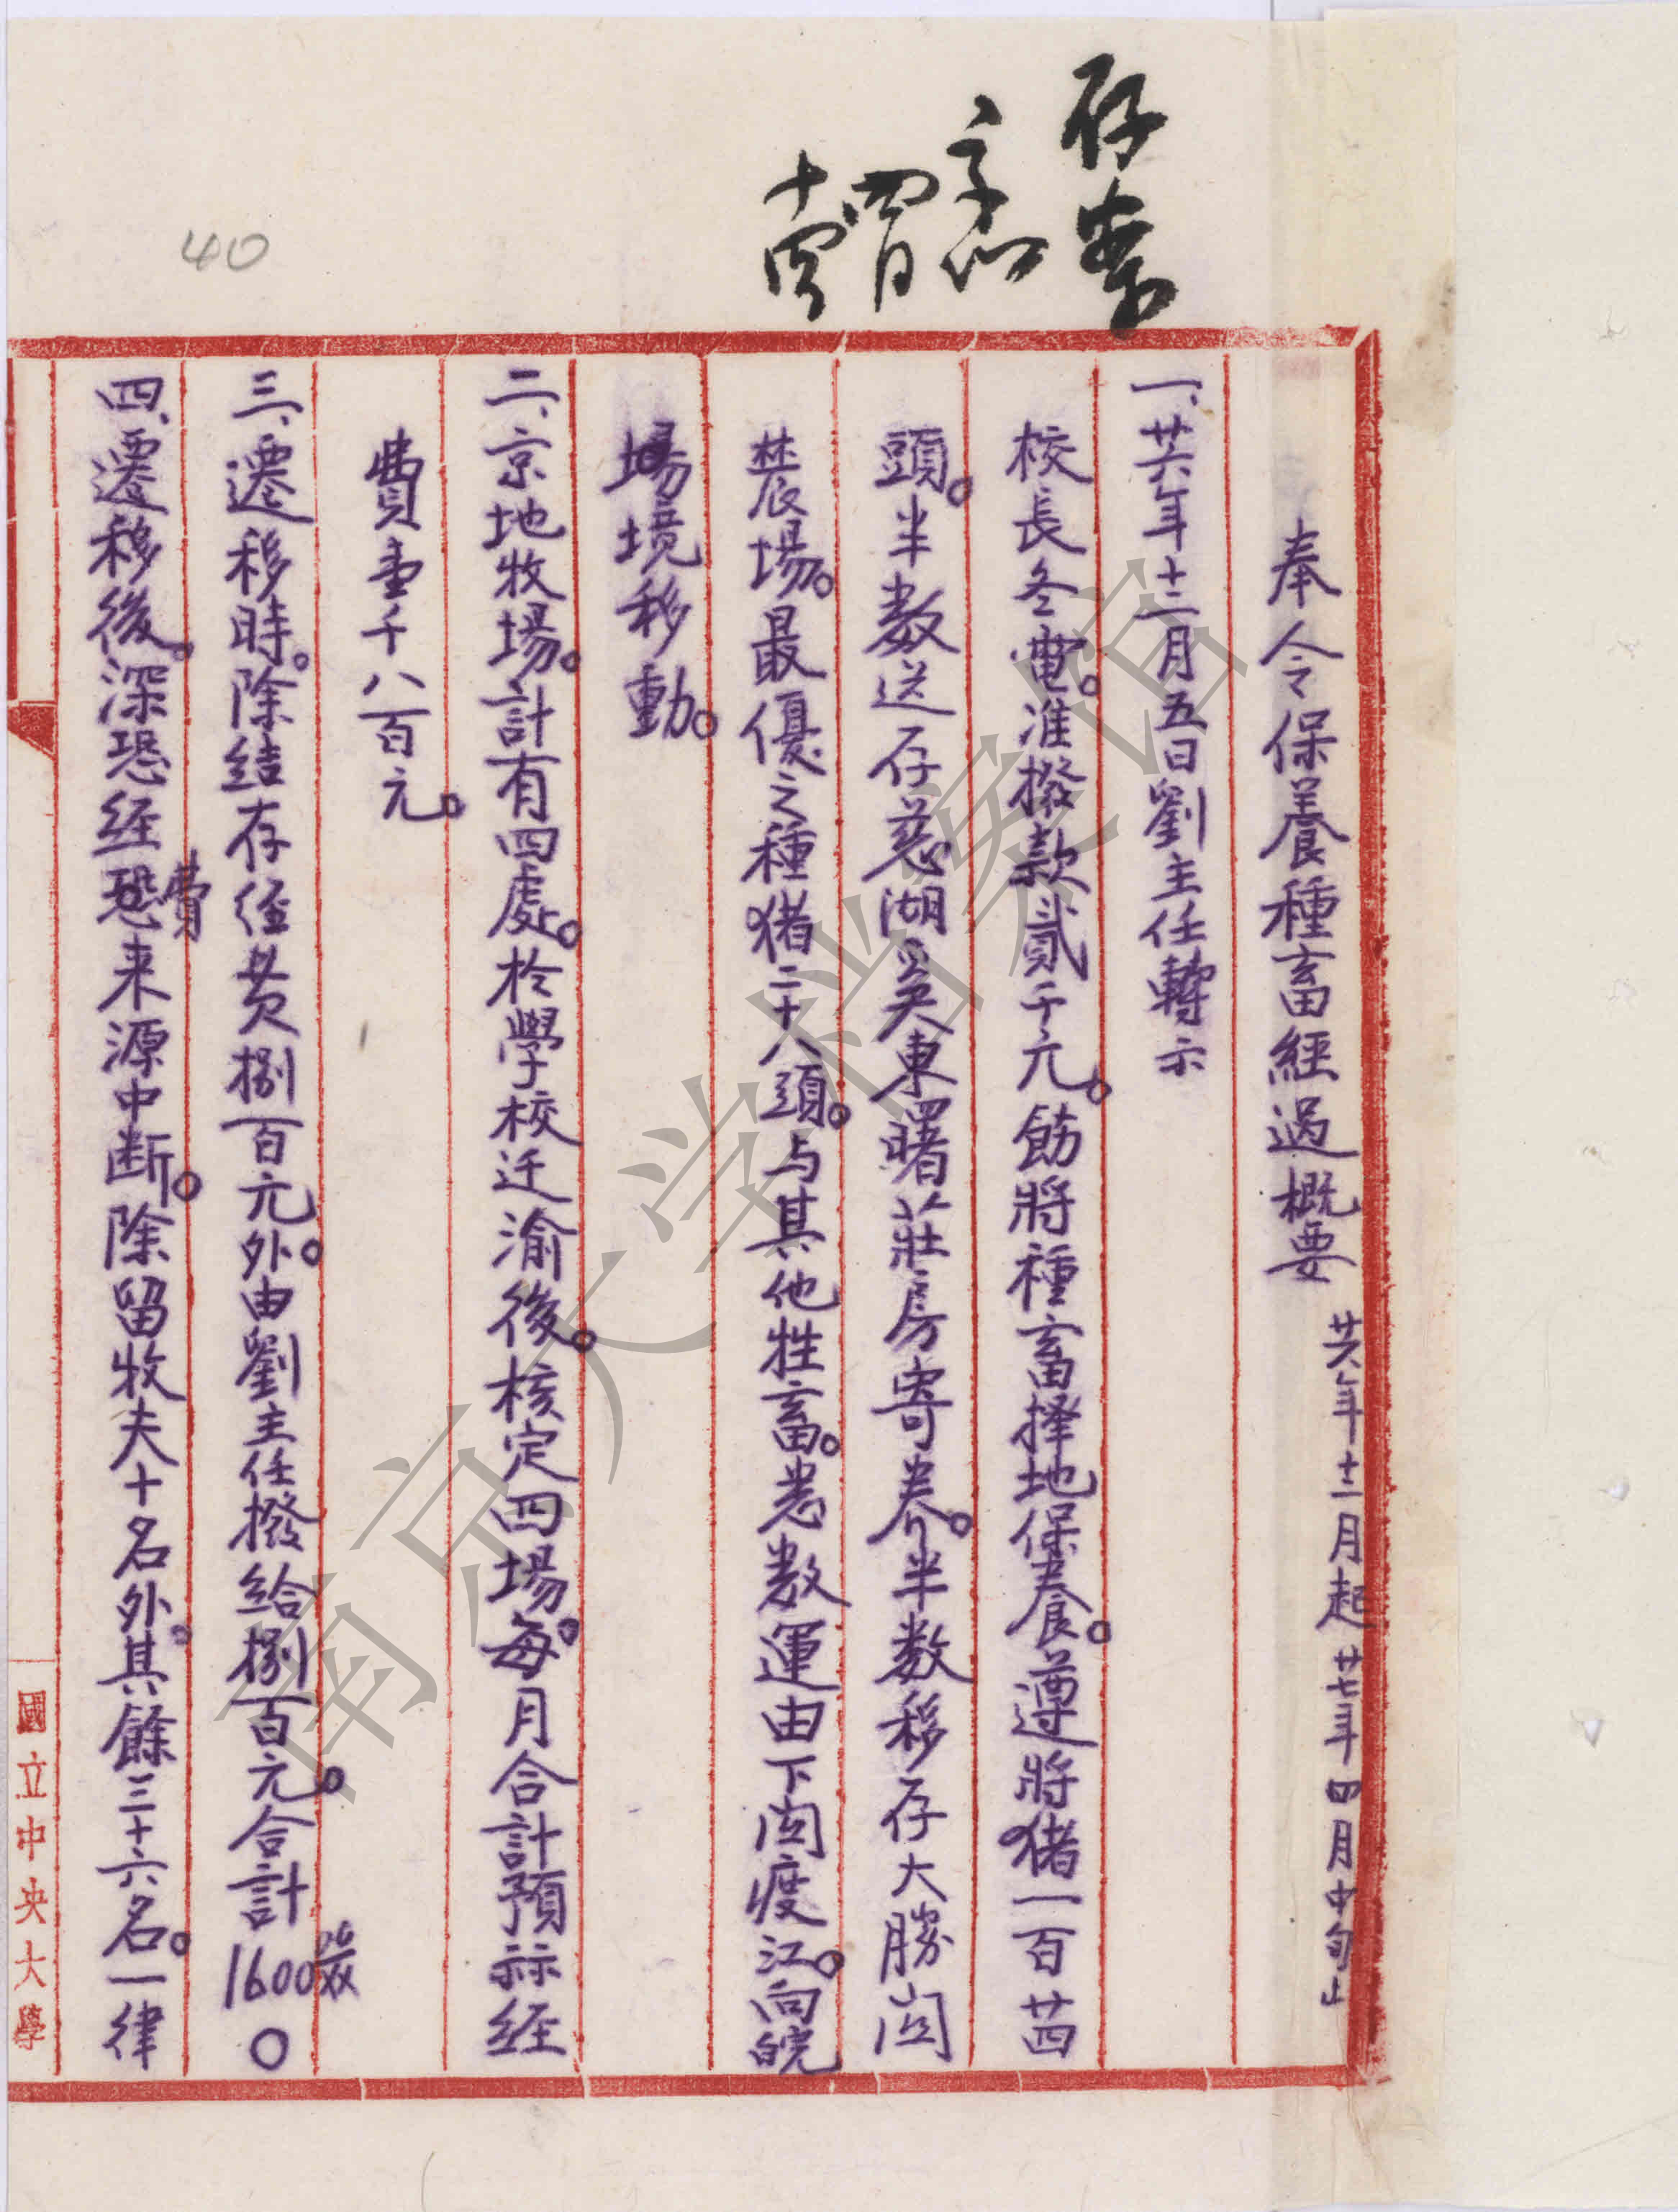 存案
四月
十四
40
奉令保養種畜經過概要 廿六年十二月起廿七年四月中旬止
一、廿六年十二月五日劉主任轉示
校長冬電。准撥款貳千元。飭將種畜择地保養。遵將猪一百廿四
頭。半数送存慈湖吴東曙莊房寄养。半数移存大勝関
農場。最優之種猪二十八頭。与其他牲畜。悉数運由下関渡江。向皖
境移動。
二、京地牧場。計有四處。於學校迁渝後。核定四場。每月合計預祘經
費壹千八百元。
三、遷移時。除結存经费捌百元。外由劉主任撥給捌百元。合計1600。
四、遷移後。深恐经費来源中断。除留牧夫十名外。其餘三十六名。一律
國立中央大學
南京大学档案馆